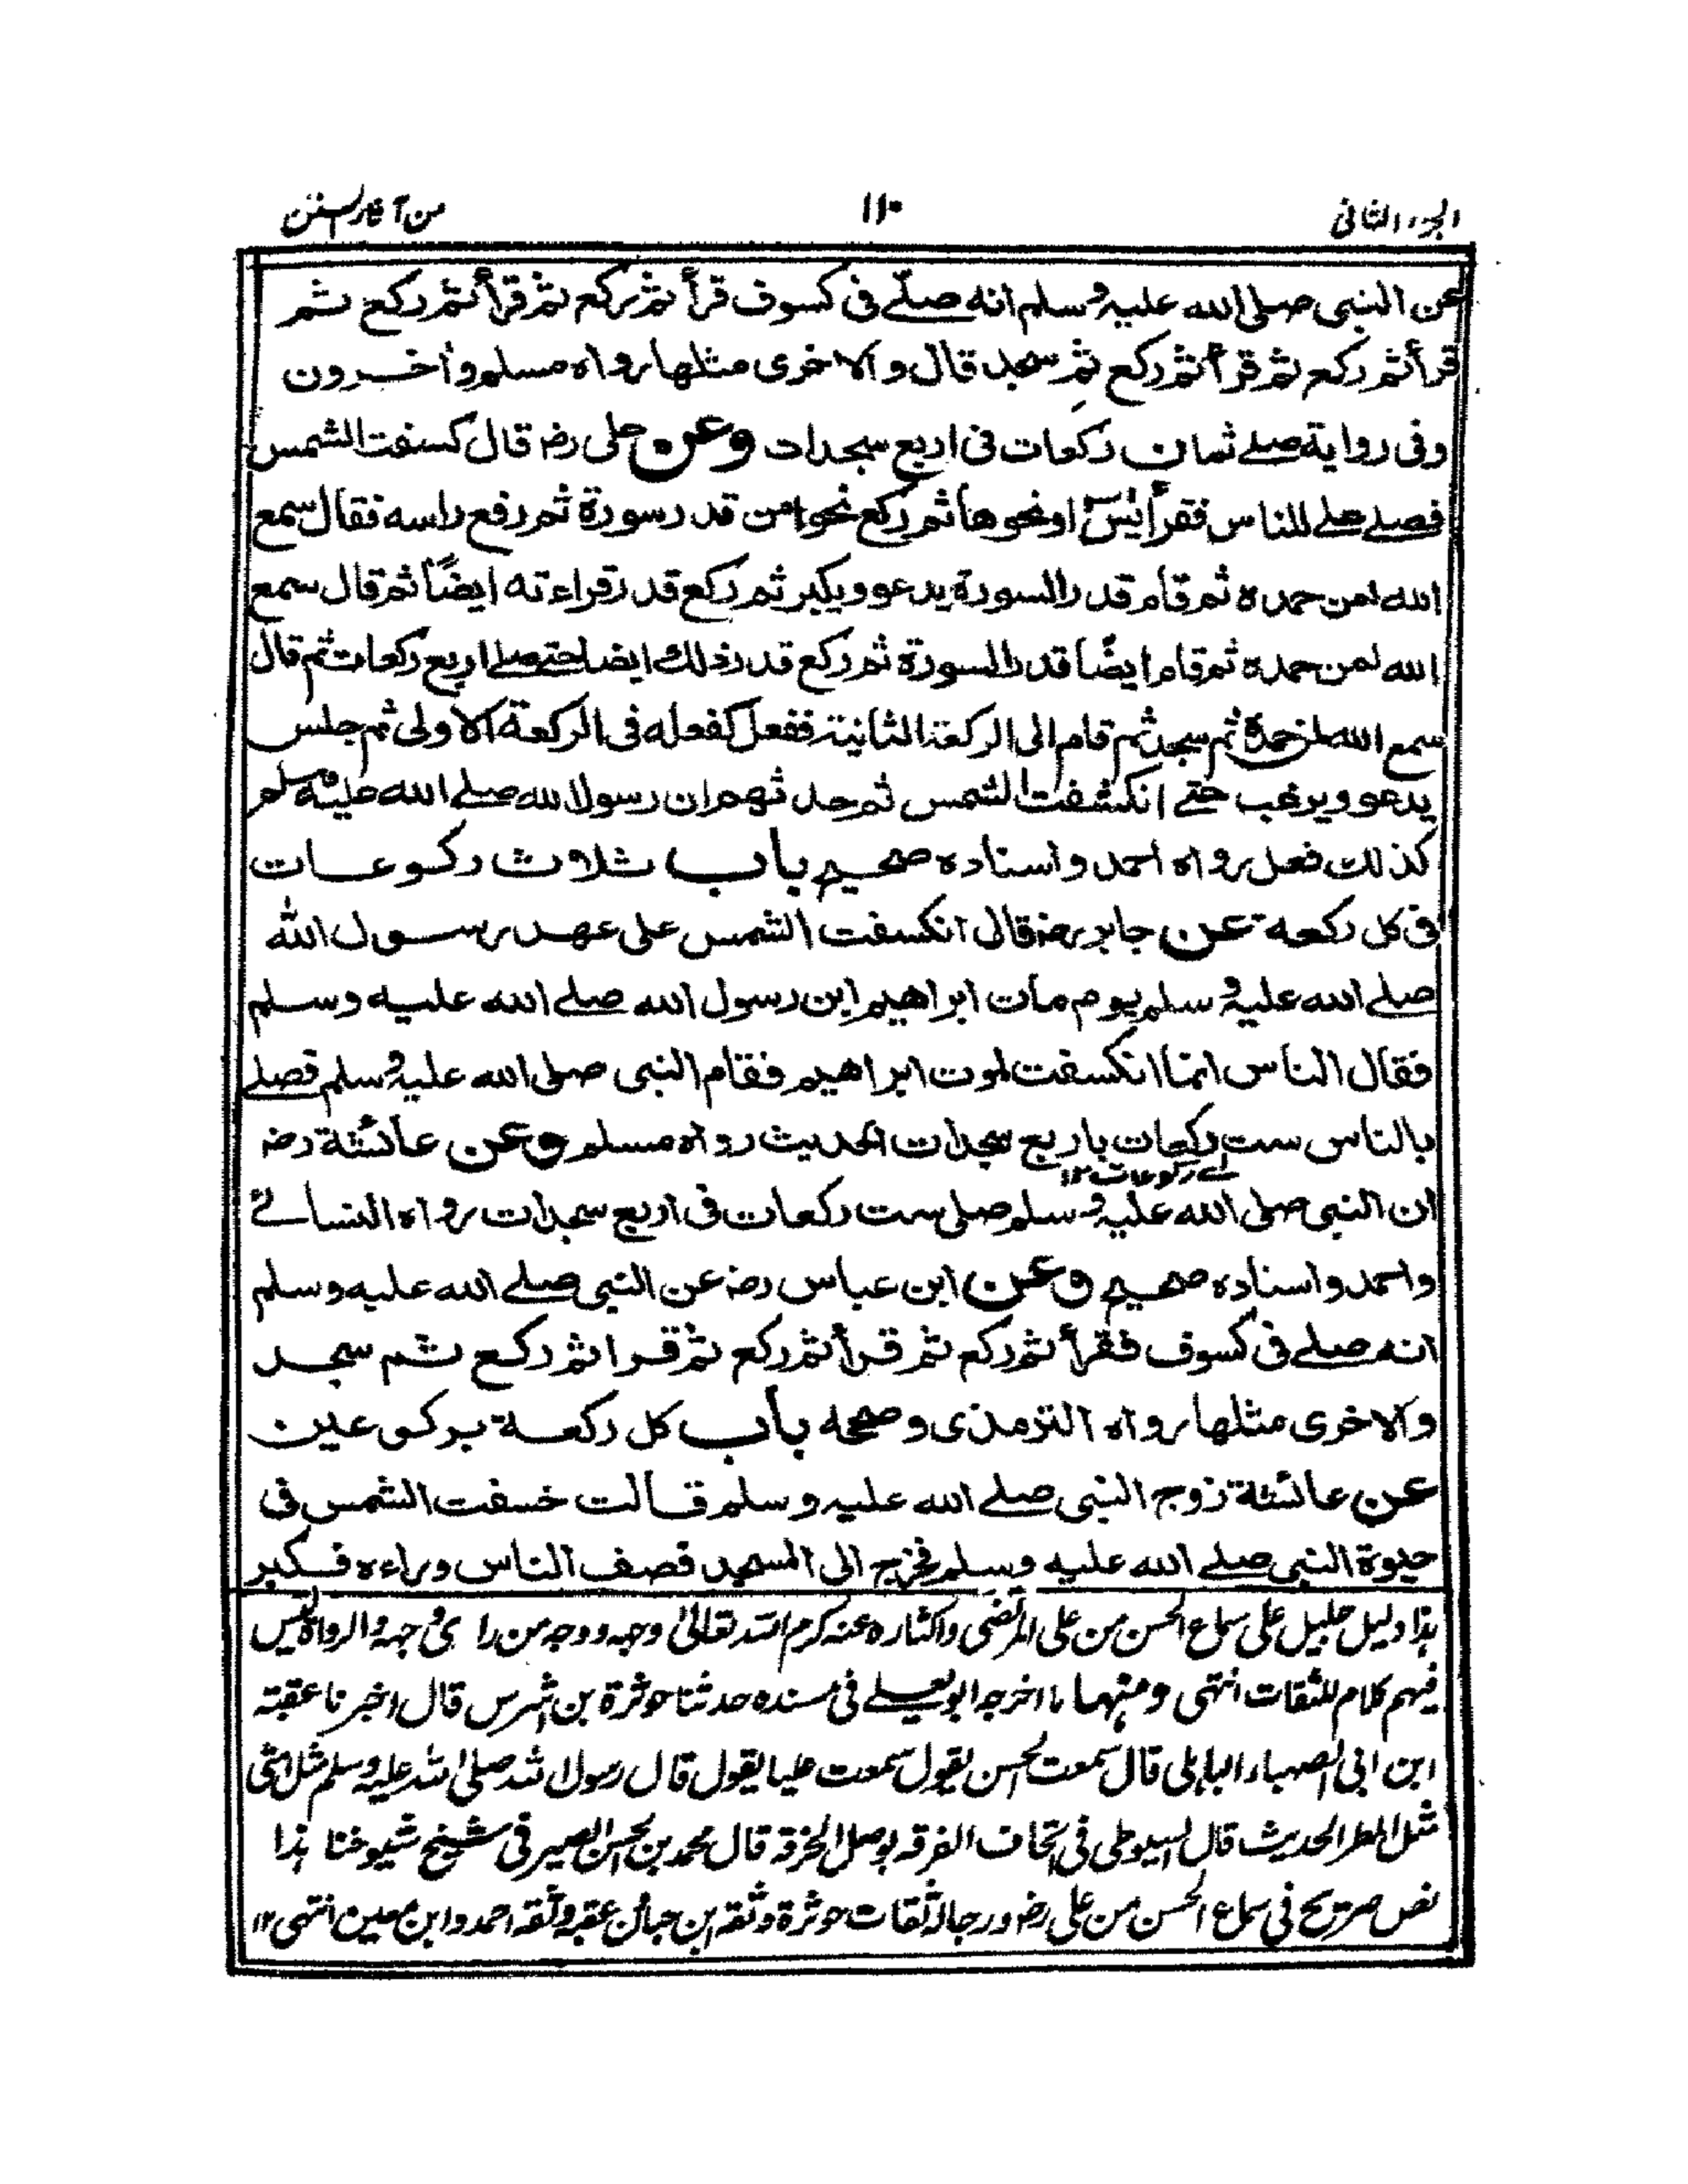 الجزء الثانى
١١٠
من آثار السنن
عن النبى صلى الله عليه وسلم انه صلّے فى كسوف قرأ ثم ركع ثم قرأ ثم ركع ثم
قرأ ثم ركع ثم قرأ ثم ركع ثم سجد قال والاخرى مثلها رواه مسلم وأخرون
وفى رواية صلے ثمان ركعات فى اربع سجدات وعن على رضـ قال كسفت الشمس
فصلے علے للناس فقرأ يٰسٓ او نحوها ثم ركع نحوا من قدر سورة ثم رفع راسه فقال سمع
الله لمن حمده ثم قام قدر السورة يدعو ويكبر ثم ركع قدر قراءته ايضًا ثم قال سمع
الله لمن حمده ثم قام ايضًا قدر السورة ثم ركع قدر ذلك ايضا حتے صلے اربع ركعات ثم قال
سمع الله لمن حمدة ثم سجد ثم قام الى الركعة الثانية ففعل كفعله فى الركعة الاولى ثم جلس
يدعو ويرغب حتے انكشفت الشمس ثم حدثهم ان رسول الله صلے الله عليه وسلم
كذلك فعل رواه احمد واسناده صحيح باب ثلاث ركوعات
فى كل ركعة عن جابر رضـ قال انكسفت الشمس على عهد رسول الله
صلے الله عليه وسلم يوم مات ابراهيم ابن رسول الله صلے الله عليه وسلم
فقال الناس انما انكسفت لموت ابراهيم فقام النبى صلى الله عليه وسلم فصلے
بالناس ست ركعات باربع سجدات الحديث رواه مسلم وعن عائشة رضـ
اے ركوعات ١٢
ان النبى صلى الله عليه وسلم صلى ست ركعات فى اربع سجدات رواه النسائے
واحمد واسناده صحيح وعن ابن عباس رضـ عن النبى صلے الله عليه وسلم
انه صلے فى كسوف فقرأ ثم ركع ثم قرأ ثم ركع ثم قرا ثم ركع ثم سجد
والاخرى مثلها رواه الترمذى وصححه باب كل ركعة بركوعين
عن عائشة زوج النبى صلے الله عليه وسلم قالت خسفت الشمس فى
حيوة النبى صلے الله عليه وسلم فخرج الى المسجد فصف الناس وراءه فكبر
هذا دليل جليل على سماع الحسن من على المرتضى واكثاره عنه كرم الله تعالىٰ وجهه ووجه من راى وجهه والرواة ليس
فيهم كلام للثقات انتهى ومنها ما اخرجه ابو يعلے فى مسنده حدثنا حوثرة بن اشرس قال اخبرنا عقبة
ابن ابى الصهباء الباهلى قال سمعت الحسن يقول سمعت عليا يقول قال رسول الله صلى الله عليه وسلم مثل امتى
مثل المطر الحديث قال السيوطى فى اتحاف الفرقه بوصل الخرقة قال محمد بن الحسن الصيرفى شيخ شيوخنا هذا
نص صريح فى سماع الحسن من على رضـ ورجاله ثقات حوثرة وثقه ابن حبان وعقبة وثقه احمد وابن معين انتهى ١٢